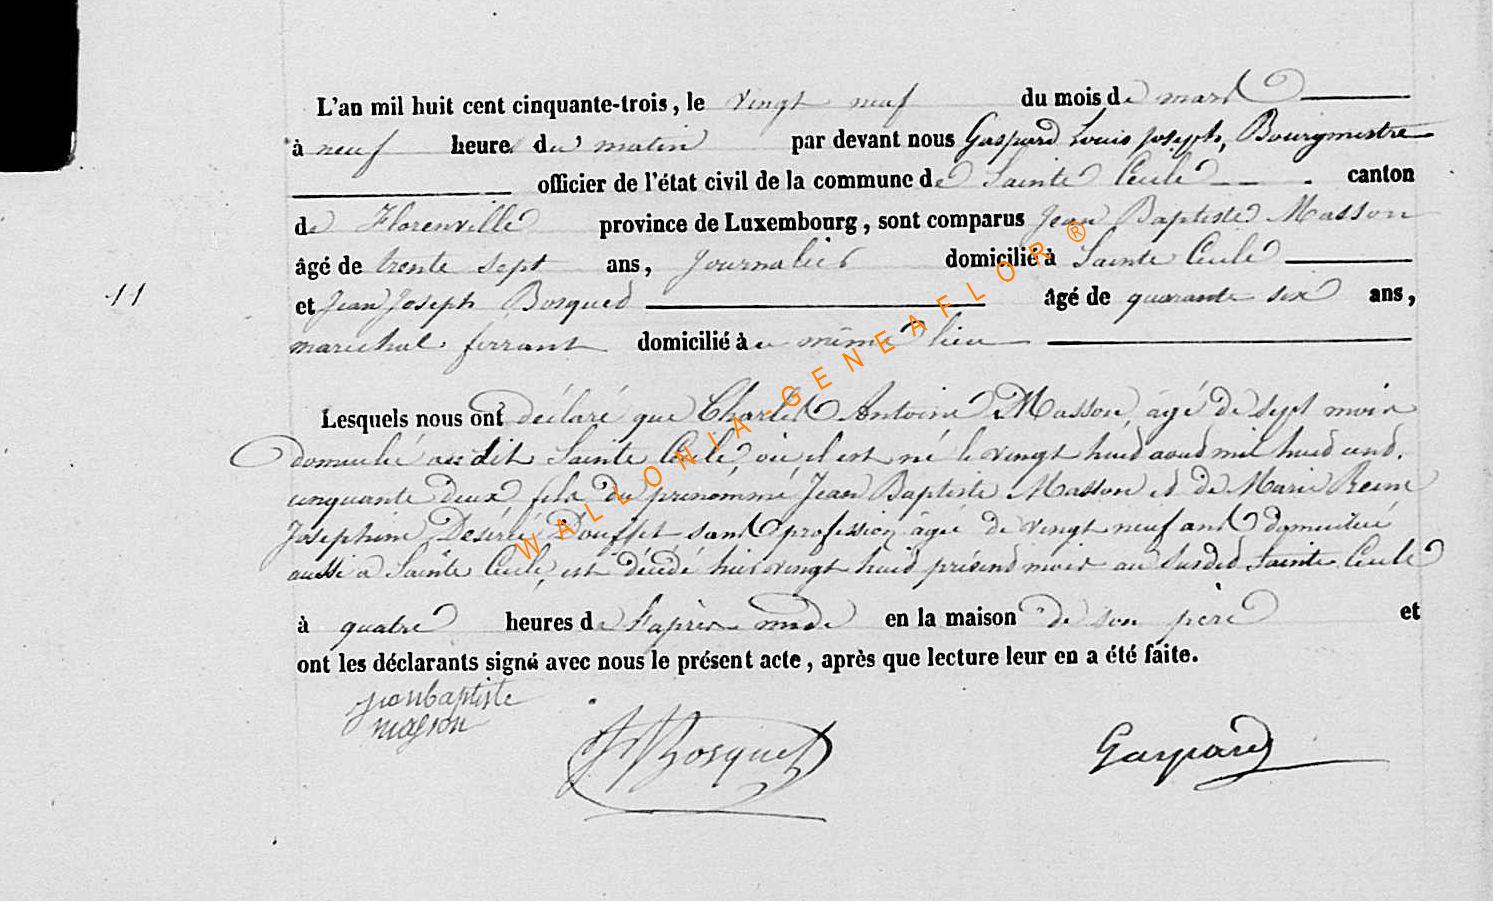 L'an mil huit cent cinquante-trois, le vingt neuf du mois de mars
à neuf heure du matin par devant nous Gaspard Louis Joseph, Bourgmestre
officier de l'état civil de la commune de Sainte Cecile canton
de Florenville province de Luxembourg, sont comparus Jean Baptiste Masson
âgé de trente sept ans, journalier domicilié à Sainte Cecile
11
et Jean Joseph Bosqued âgé de quarante six ans,
marechal ferrant domicilié à même lieu
Lesquels nous ont déclaré que Charles Antoine Masson âgé de sept mois
domicilié au dit Sainte Cecile, où il est né le vingt huid aoud mil huid cend
cinquante deux fils du prénommé Jean Baptiste Masson et de Marie Reine
Josephine Desirée Douffet sans profession âgée de vingt neuf ans domiciliée
aussi a Sainte Cecile, est décédé hier vingt huid présend mois au susded Sainte Cecile
à quatre heures de l'après-midi en la maison de son père et
ont les déclarants signé avec nous le présent acte, après que lecture leur en a été faite.
jeanbaptiste
masson
JJ Bosquet
Gaspard
WALLONIA-GENEAFLOR®